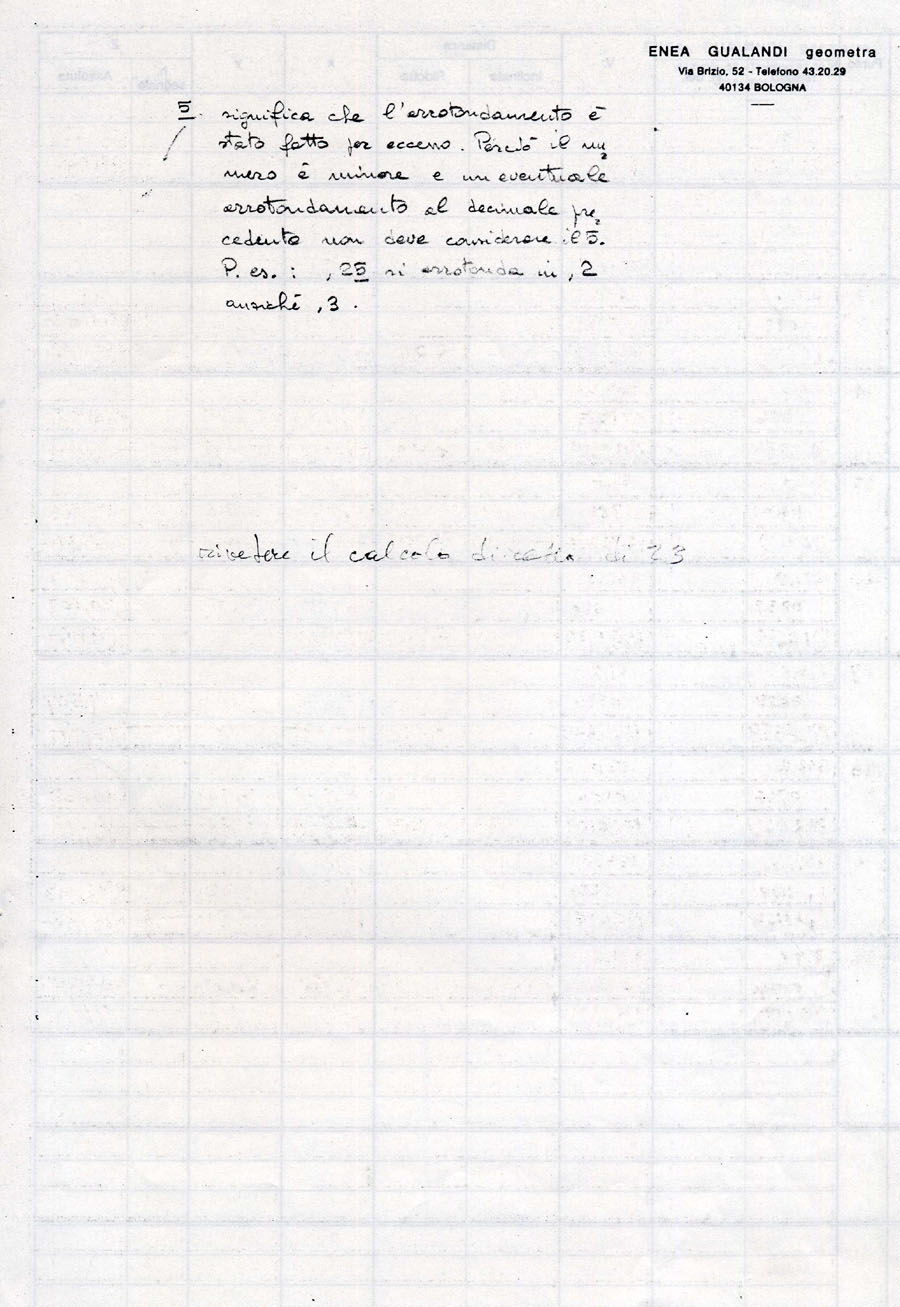 ENEA GUALANDI geometra
Via Brizio, 52 - Telefono 43.20.29
40134 BOLOGNA
5 significa che l'arrotondamento è
stato fatto per eccesso. Perciò il nu=
mero è minore e un eventuale
arrotondamento al decimale pre=
cedente non deve considerare il 5.
P. es.: ,25 si arrotonda in ,2
anziché ,3.
ripetere il calcolo di di 23